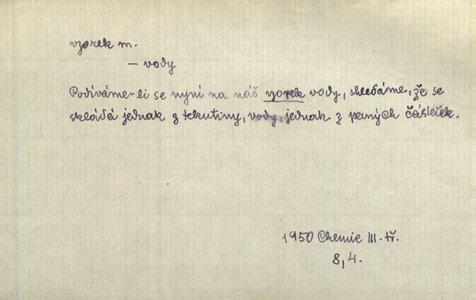 vzorek m.
– vody
Podíváme-li se nyní na náš vzorek vody, shledáme, že se
skládá jednak z tekutiny, vody, jednak z pevných částeček.
1950 Chemie III. tř.
8, 4.